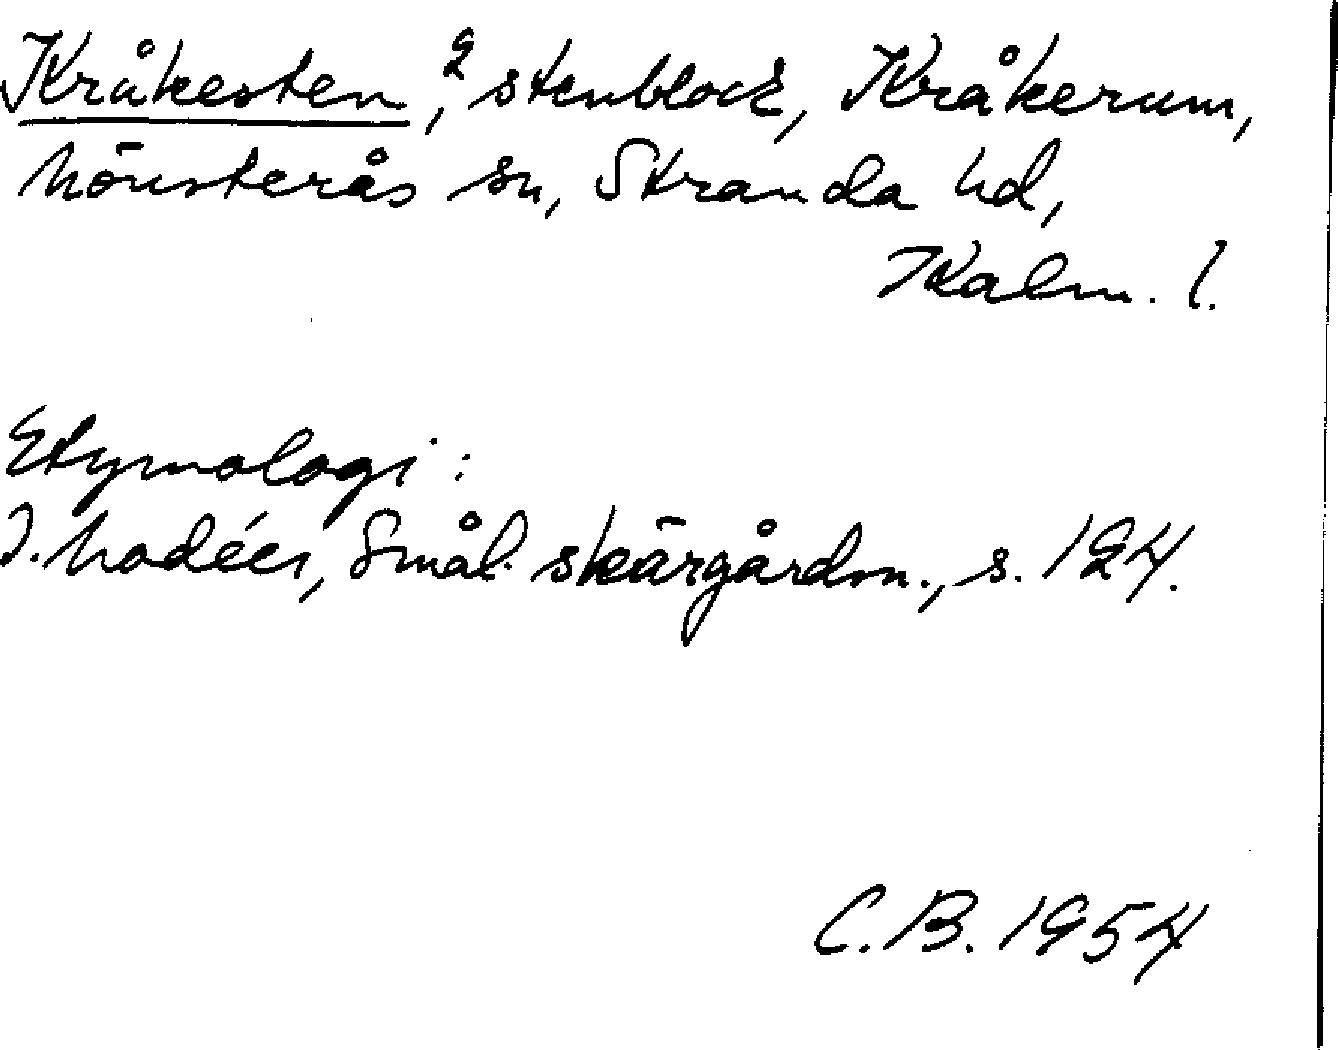 Kråkesten,² stenblock, Kråkerum,
Mönsterås sn, Stranda hd,
Kalm. l.
Etymologi:
I. Modéer, Smål. skärgårdsn., s. 124.
C.B. 1954